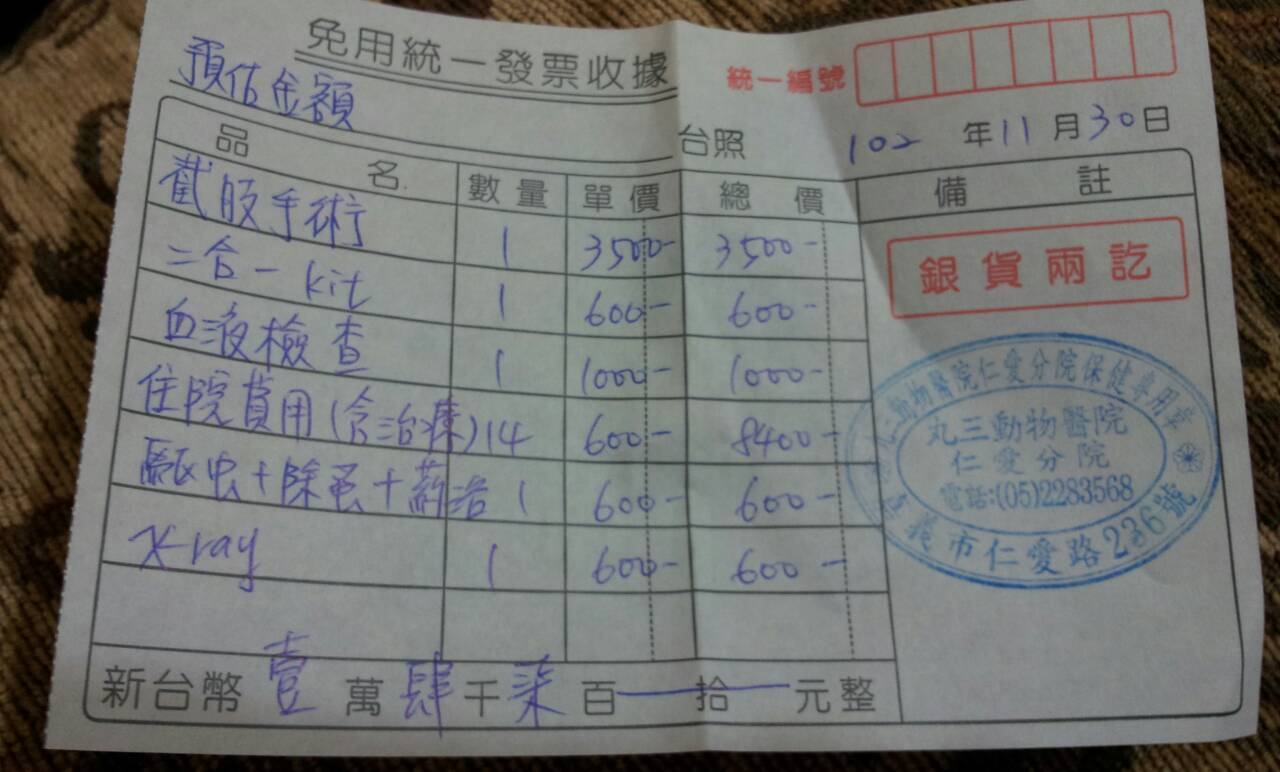 免用統一發票收據
統一編號
預估金額
台照
102 年 11 月 30 日
品名 數量 單價 總價 備註
截肢手術 1 3500- 3500-
二合一 kit 1 600- 600-
血液檢查 1 1000- 1000-
住院費用(含治療) 14 600- 8400-
驅虫+除蚤+藥浴 1 600- 600-
X-ray 1 600- 600-
銀貨兩訖
動物醫院仁愛分院保健專用章
丸三動物醫院
仁愛分院
電話:(05)2283568
嘉義市仁愛路236號
新台幣 壹 萬 肆 千 柒 百 拾 元整